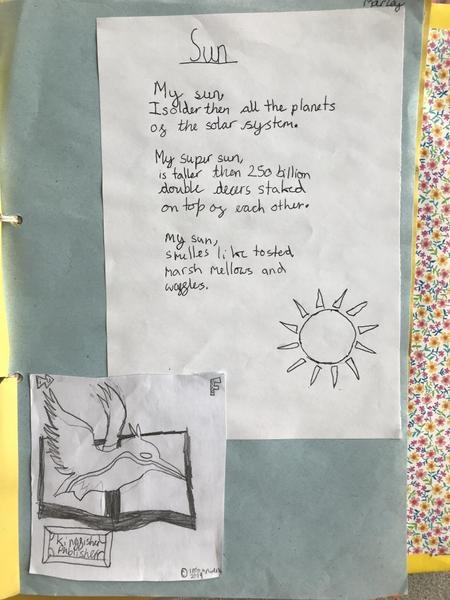 Marley
Sun
My sun,
Is older then all the planets
og the solar system.
My super sun,
is taller then 250 billion
double decers staked
on top og each other.
My sun,
smelles like tosted
marsh mellows and
waggles.
Kingfisher
Publisher